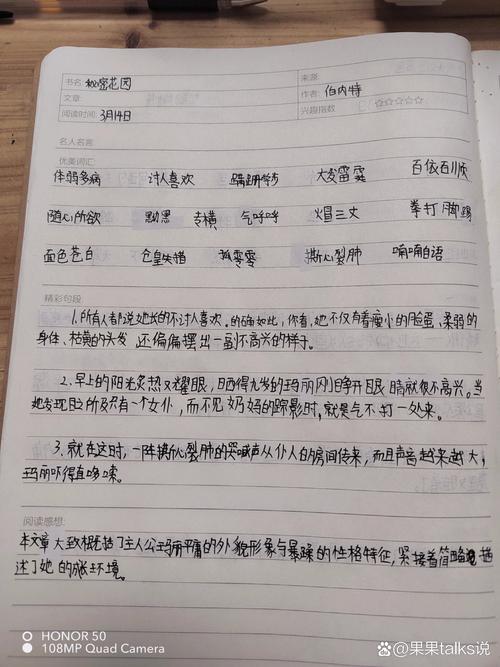 书名: 秘密花园
来源:
文章:
作者: 伯内特
阅读时间: 3月14日
兴趣指数: ☆☆☆☆☆
名人名言:
优美词汇:
体弱多病 讨人喜欢 蹑脚 大发雷霆 百依百顺
随心所欲 勤黑 专横 气呼呼 火冒三丈 拳打脚踢
面色苍白 仓皇失措 孤零零 撕心裂肺 喃喃自语
精彩句段:
1.所有人都说她长的不讨人喜欢。的确如此,你看,她不仅有着瘦小的脸蛋,柔弱的
身体、枯黄的头发 还偏偏摆出一副不高兴的样子。
2.早上的阳光炙热又耀眼,日晒得九岁的玛丽刚睁开眼睛就很不高兴。当
她发现目之所及只有一个女仆,而不见奶妈的踪影时,就是气不打一处来。
3.就在这时,一阵撕心裂肺的哭喊声从仆人的房间传来,而且声音越来越大,
玛丽吓得直哆嗦。
阅读感想:
本文章大致概括了主人公玛丽平庸的外貌形象与暴躁的性格特征,紧接着简略地描
述了她的成长环境。
HONOR 50
108MP Quad Camera
果果talks说